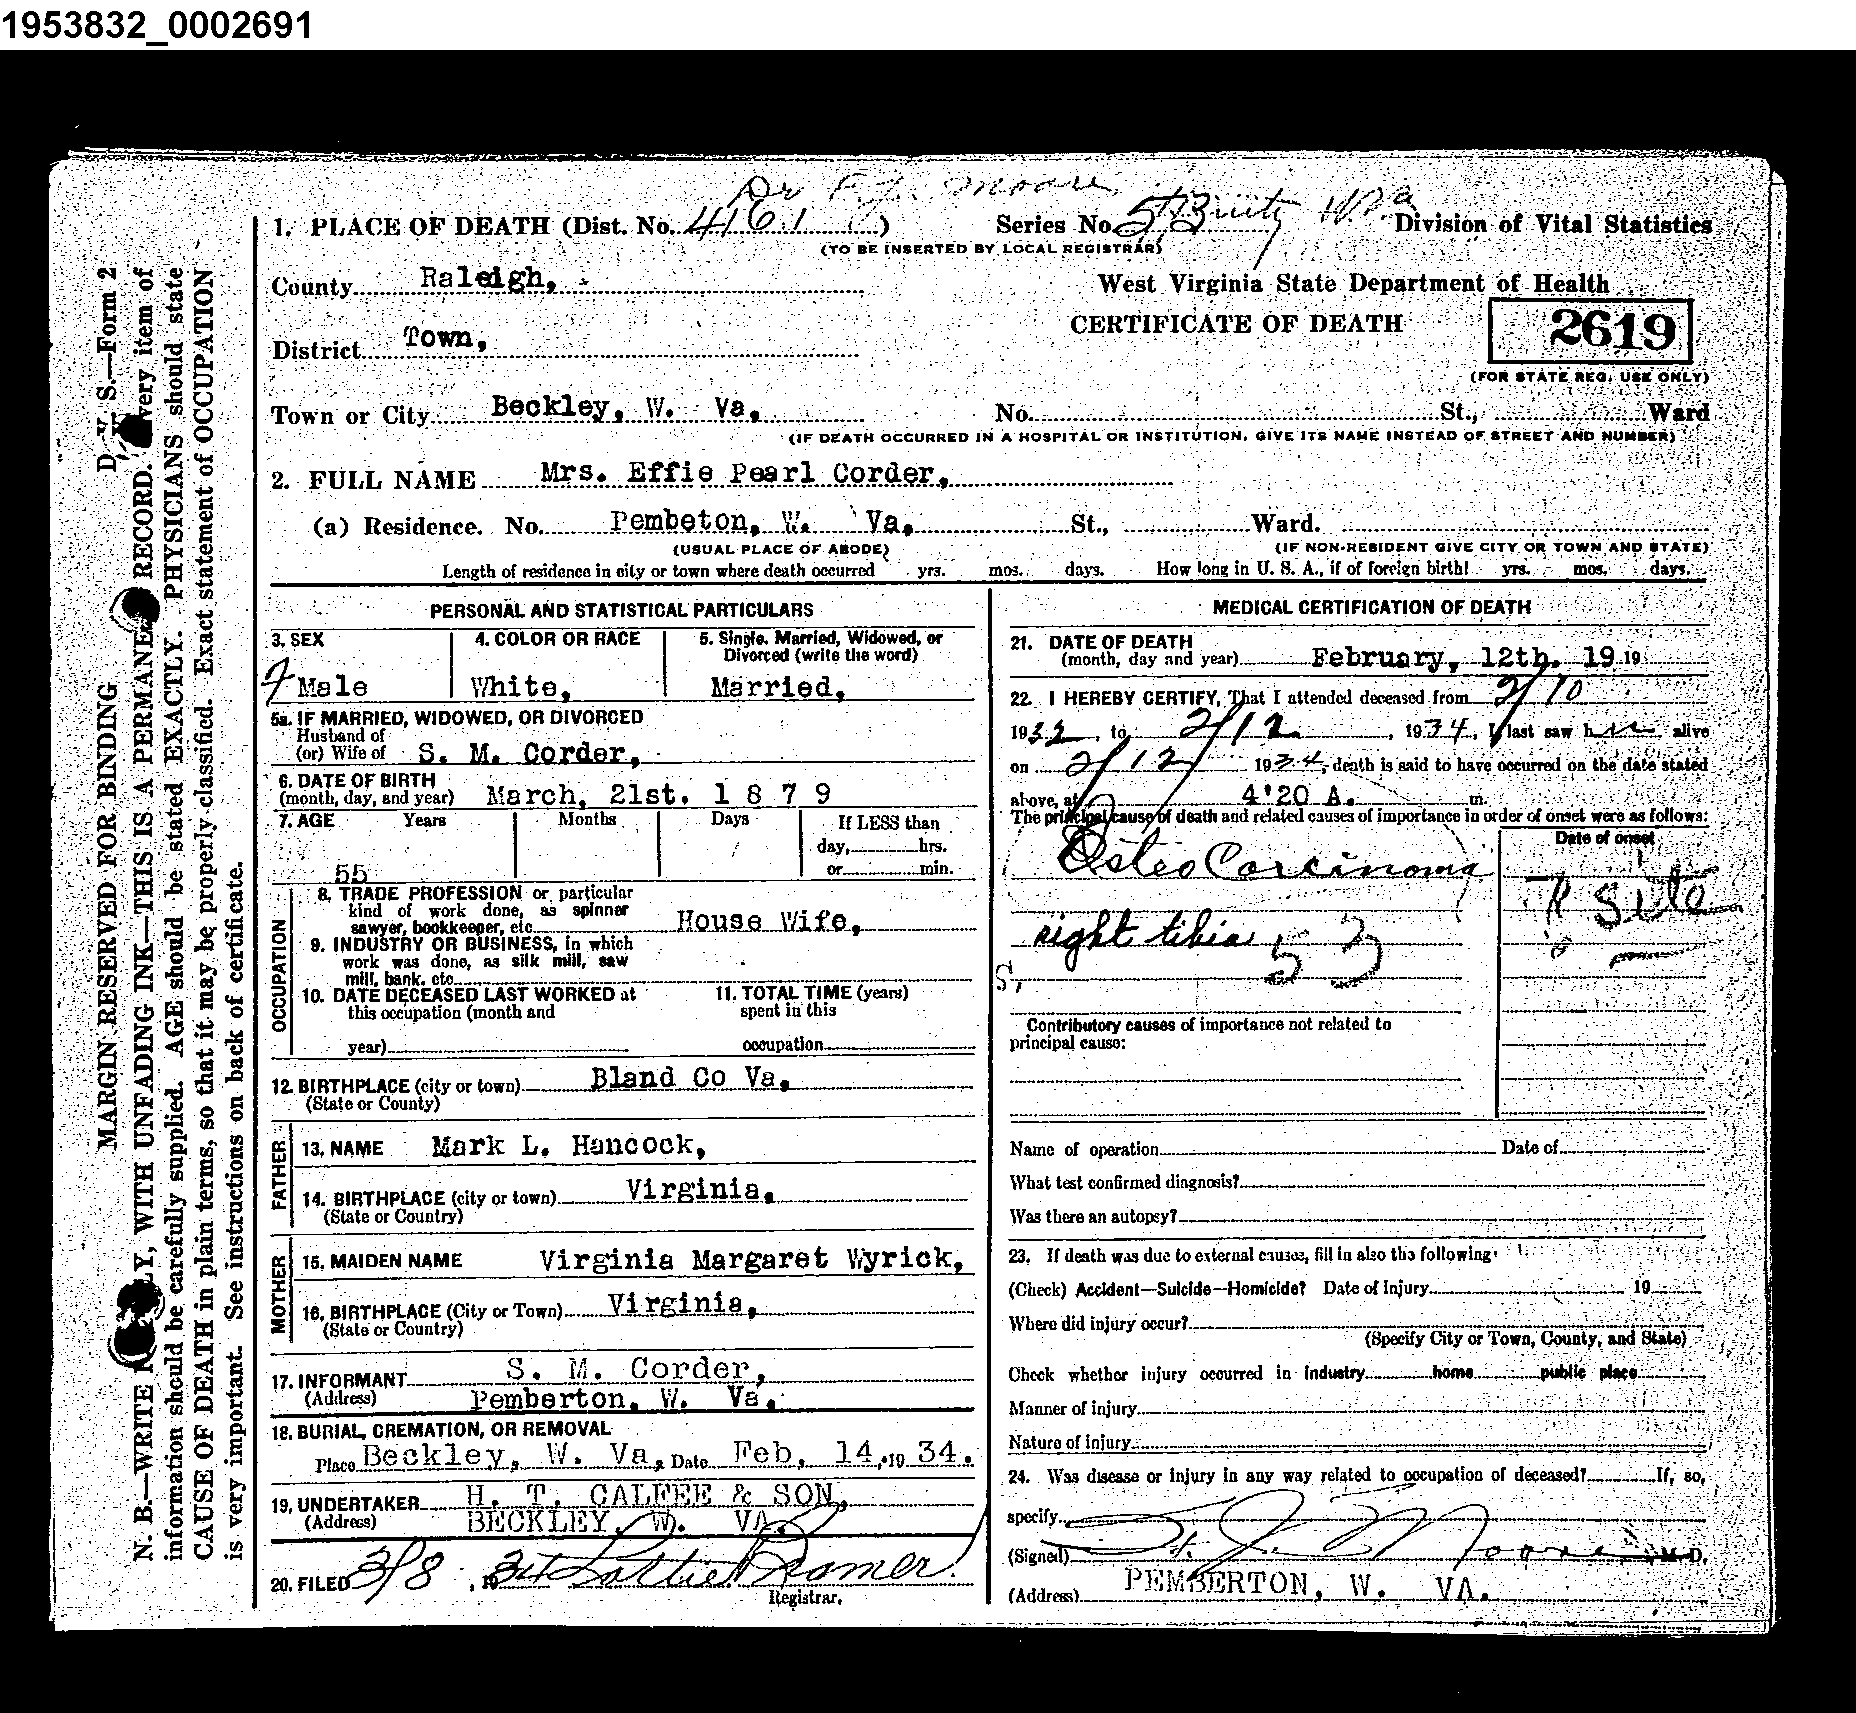 1953832_0002691
Dr F.J. Moore
1. PLACE OF DEATH (Dist. No. 4161) Series No. 53 Division of Vital Statistics
(TO BE INSERTED BY LOCAL REGISTRAR)
County Raleigh, West Virginia State Department of Health
CERTIFICATE OF DEATH 2619
District Town,
(FOR STATE REG. USE ONLY)
Town or City Beckley, W. Va, No. St., Ward
(IF DEATH OCCURRED IN A HOSPITAL OR INSTITUTION, GIVE ITS NAME INSTEAD OF STREET AND NUMBER)
2. FULL NAME Mrs. Effie Pearl Corder,
(a) Residence. No. Pembeton, W. Va, St., Ward.
(USUAL PLACE OF ABODE) (IF NON-RESIDENT GIVE CITY OR TOWN AND STATE)
Length of residence in city or town where death occurred yrs. mos. days. How long in U. S. A., if of foreign birth? yrs. mos. days.
PERSONAL AND STATISTICAL PARTICULARS
3. SEX 4. COLOR OR RACE 5. Single, Married, Widowed, or
Divorced (write the word)
Male White, Married,
5a. IF MARRIED, WIDOWED, OR DIVORCED
Husband of
(or) Wife of S. M. Corder,
6. DATE OF BIRTH
(month, day, and year) March, 21st. 1 8 7 9
7. AGE Years Months Days If LESS than
day, hrs.
55 or min.
OCCUPATION
8. TRADE PROFESSION or particular
kind of work done, as spinner
sawyer, bookkeeper, etc. House Wife,
9. INDUSTRY OR BUSINESS, in which
work was done, as silk mill, saw
mill, bank, etc.
10. DATE DECEASED LAST WORKED at 11. TOTAL TIME (years)
this occupation (month and spent in this
year) occupation
12. BIRTHPLACE (city or town) Bland Co Va,
(State or County)
FATHER
13. NAME Mark L. Hancock,
14. BIRTHPLACE (city or town) Virginia,
(State or Country)
MOTHER
15. MAIDEN NAME Virginia Margaret Wyrick,
16. BIRTHPLACE (City or Town) Virginia,
(State or Country)
17. INFORMANT S. M. Corder,
(Address) Pemberton, W. Va,
18. BURIAL, CREMATION, OR REMOVAL
Place Beckley, W. Va, Date Feb, 14, 19 34.
19, UNDERTAKER H. T. CALFEE & SON,
(Address) BECKLEY, W. VA.
20. FILED 3/8, 19 34 Lottie Romer
Registrar.
MEDICAL CERTIFICATION OF DEATH
21. DATE OF DEATH
(month, day and year) February, 12th. 19 19
22. I HEREBY CERTIFY, That I attended deceased from 2/10
1932, to 2/12, 1934, I last saw her alive
on 2/12 1934, death is said to have occurred on the date stated
above, at 4'20 A. m.
The principal cause of death and related causes of importance in order of onset were as follows:
Date of onset
Osteo Carcinoma
right tibia 53
Contributory causes of importance not related to
principal cause:
Name of operation Date of
What test confirmed diagnosis?
Was there an autopsy?
23. If death was due to external causes, fill in also the following:
(Check) Accident—Suicide—Homicide? Date of Injury 19
Where did injury occur?
(Specify City or Town, County, and State)
Check whether injury occurred in industry home public place
Manner of injury
Nature of injury
24. Was disease or injury in any way related to occupation of deceased? If, so,
specify
(Signed) F. J. Moore M. D.
(Address) PEMBERTON, W. VA.
D. V. S.—Form 2
MARGIN RESERVED FOR BINDING
N. B.—WRITE PLAINLY, WITH UNFADING INK—THIS IS A PERMANENT RECORD. Every item of
information should be carefully supplied. AGE should be stated EXACTLY. PHYSICIANS should state
CAUSE OF DEATH in plain terms, so that it may be properly classified. Exact statement of OCCUPATION
is very important. See instructions on back of certificate.